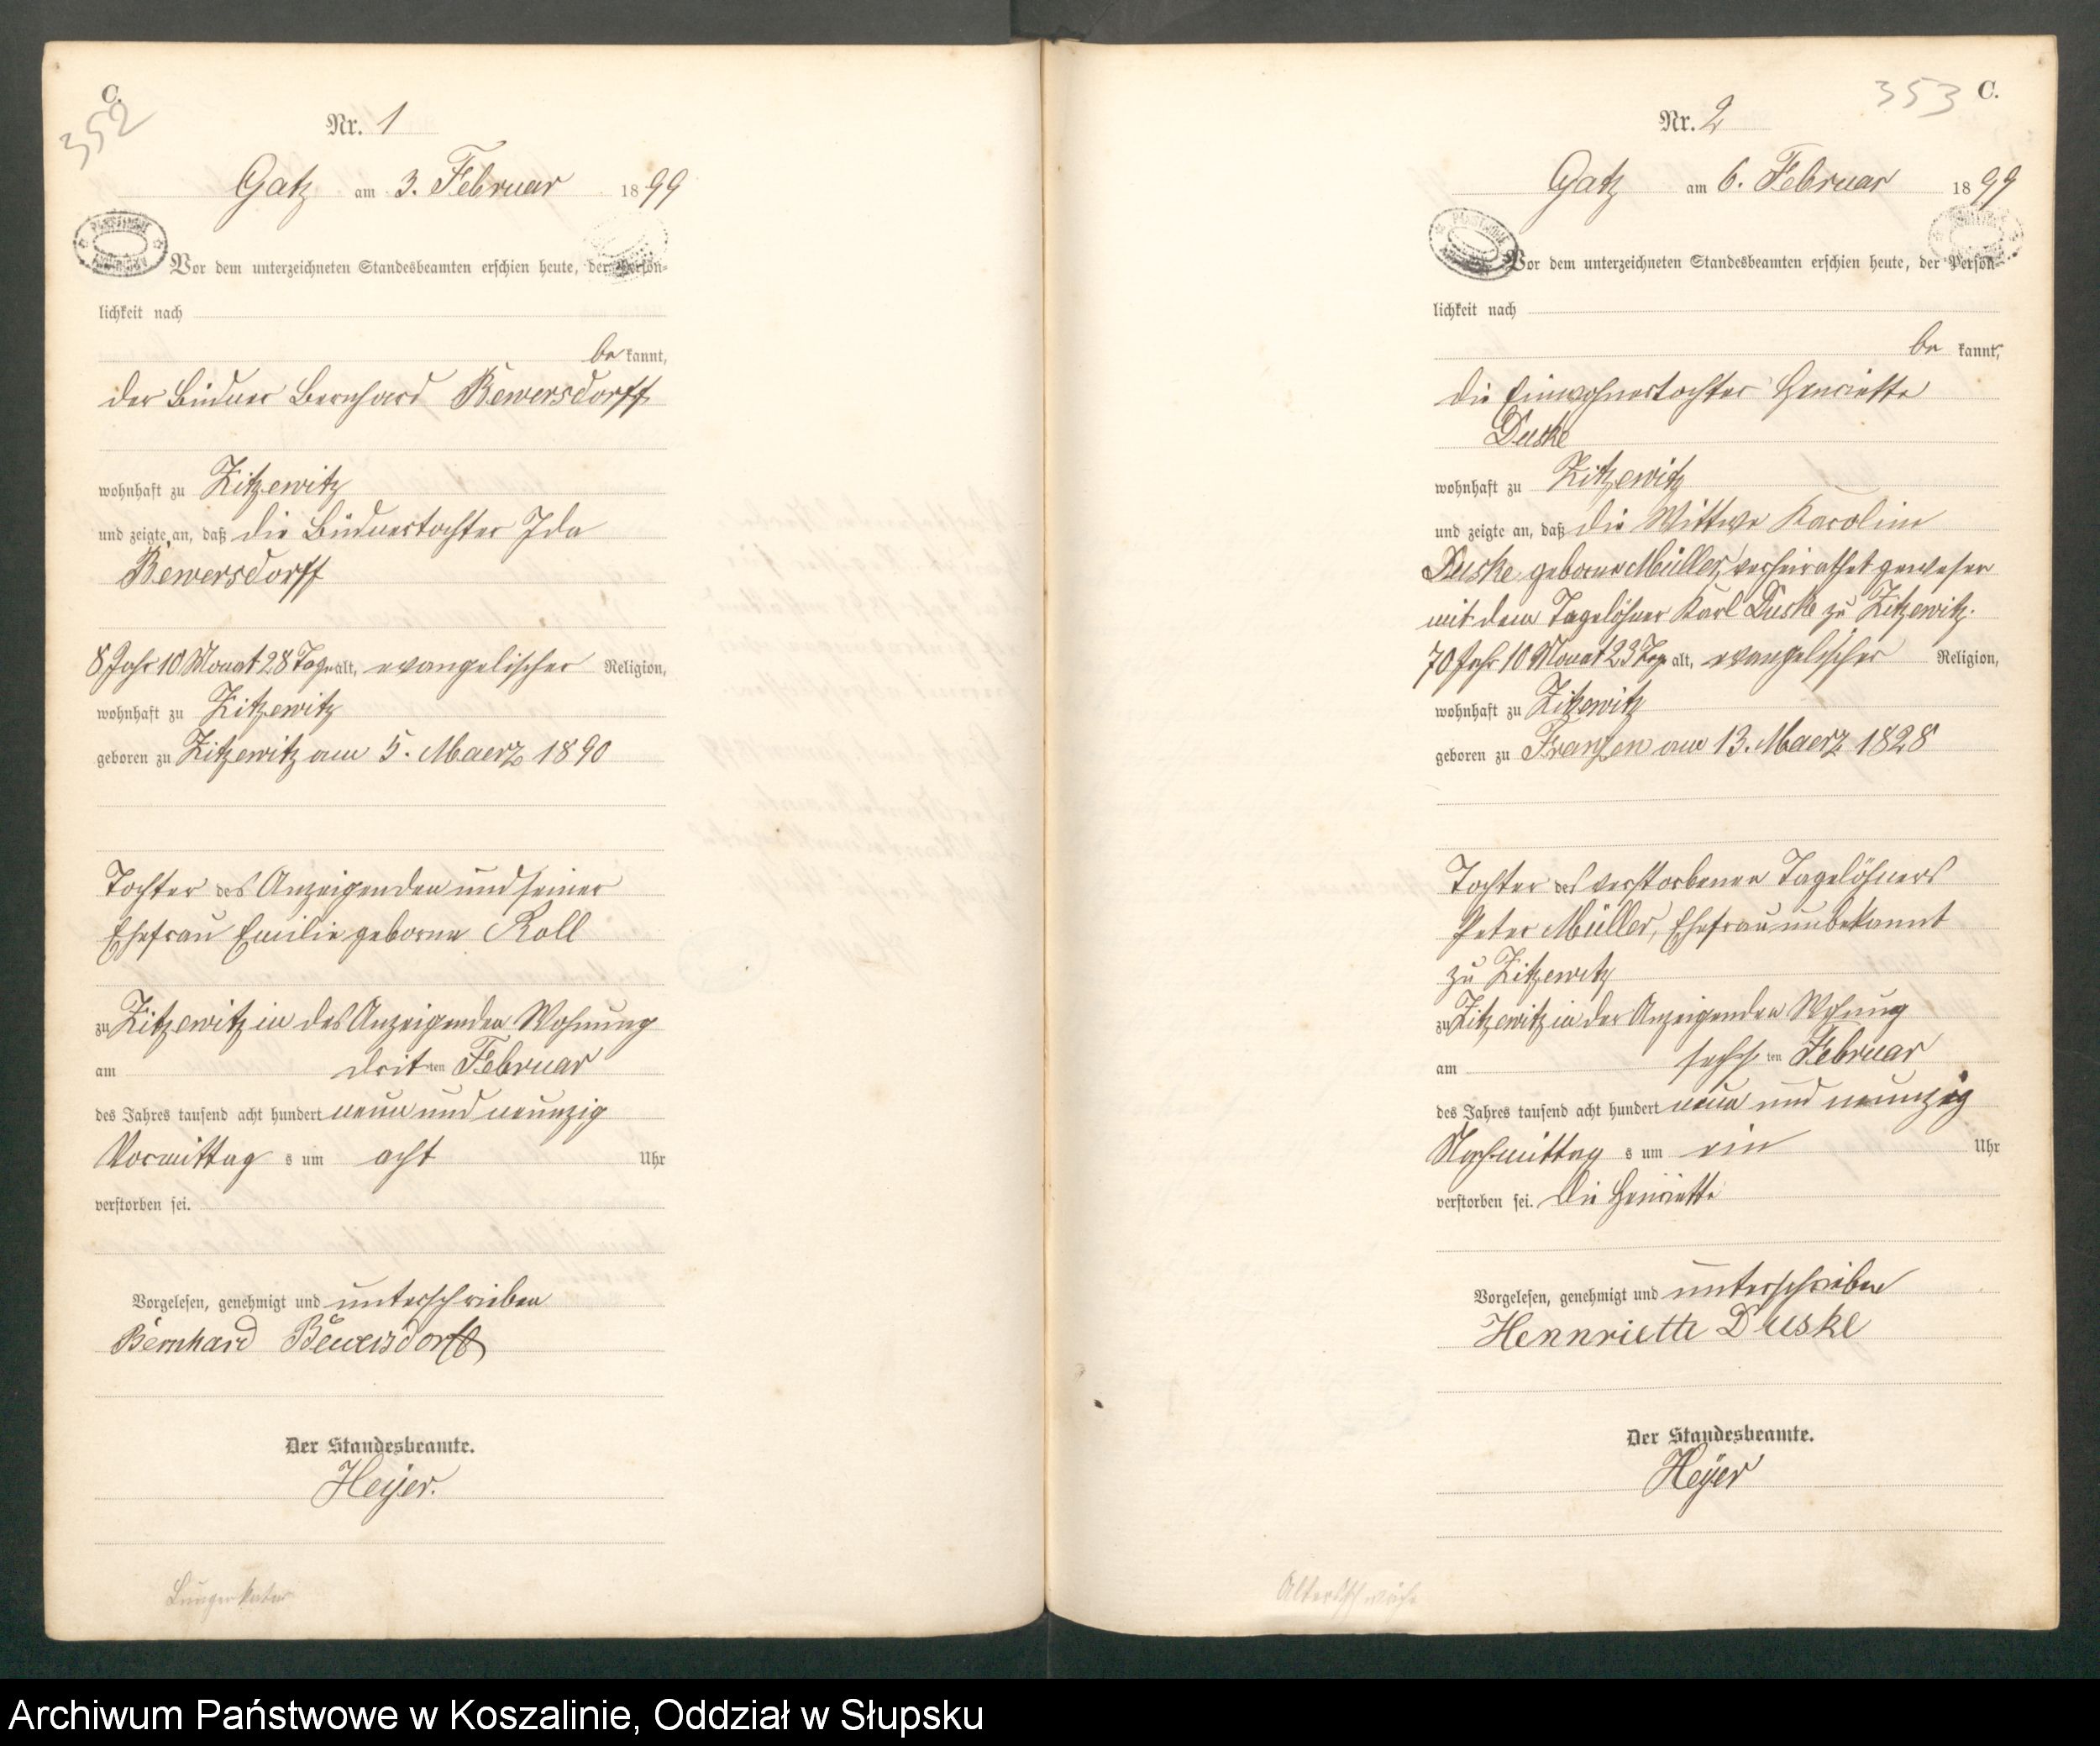 C.
352
Nr. 1
Gatz am 3. Februar 1899
Vor dem unterzeichneten Standesbeamten erschien heute, der Persön-
lichkeit nach
be kannt,
der Büdner Bernhard Bewersdorff
wohnhaft zu Zitzewitz
und zeigte an, daß die Büdnertochter Ida
Bewersdorff
8 Jahr 10 Monat 28 Tage alt, evangelischer Religion,
wohnhaft zu Zitzewitz
geboren zu Zitzewitz am 5. Maerz 1890
Tochter des Anzeigenden und seiner
Ehefrau Emilie geborne Roll
zu Zitzewitz in des Anzeigenden Wohnung
am dritten Februar
des Jahres tausend acht hundert neun und neunzig
Vormittag s um acht Uhr
verstorben sei.
Vorgelesen, genehmigt und unterschrieben
Bernhard Bewersdorff
Der Standesbeamte.
Heyer.
Lungenkatar
353 C.
Nr. 2
Gatz am 6. Februar 1899
Vor dem unterzeichneten Standesbeamten erschien heute, der Persön-
lichkeit nach
be kannt,
die Einwohnertochter Henriette
Duske
wohnhaft zu Zitzewitz
und zeigte an, daß die Wittwe Karoline
Duske geborne Müller, verheirathet gewesen
mit dem Tagelöhner Karl Duske zu Zitzewitz.
70 Jahr 10 Monat 23 Tage alt, evangelischer Religion,
wohnhaft zu Zitzewitz
geboren zu Franzen am 13. Maerz 1828
Tochter des verstorbenen Tagelöhners
Peter Müller, Ehefrau unbekannt
zu Zitzewitz
zu Zitzewitz in der Anzeigenden Wohnung
am sechsten Februar
des Jahres tausend acht hundert neun und neunzig
Nachmittag s um ein Uhr
verstorben sei. Die Henriette
Vorgelesen, genehmigt und unterschrieben
Hennriette Duske
Der Standesbeamte.
Heyer
Altersschwäche
Archiwum Państwowe w Koszalinie, Oddział w Słupsku